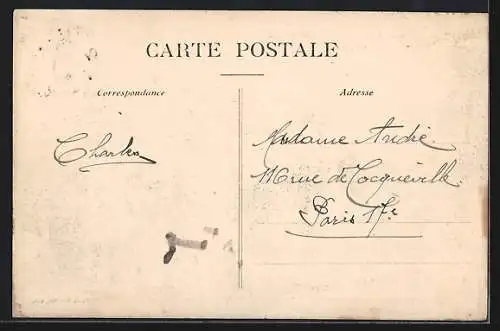 CARTE POSTALE
Correspondance
Adresse
Charles
Madame André
116 rue de Tocqueville
Paris 17e